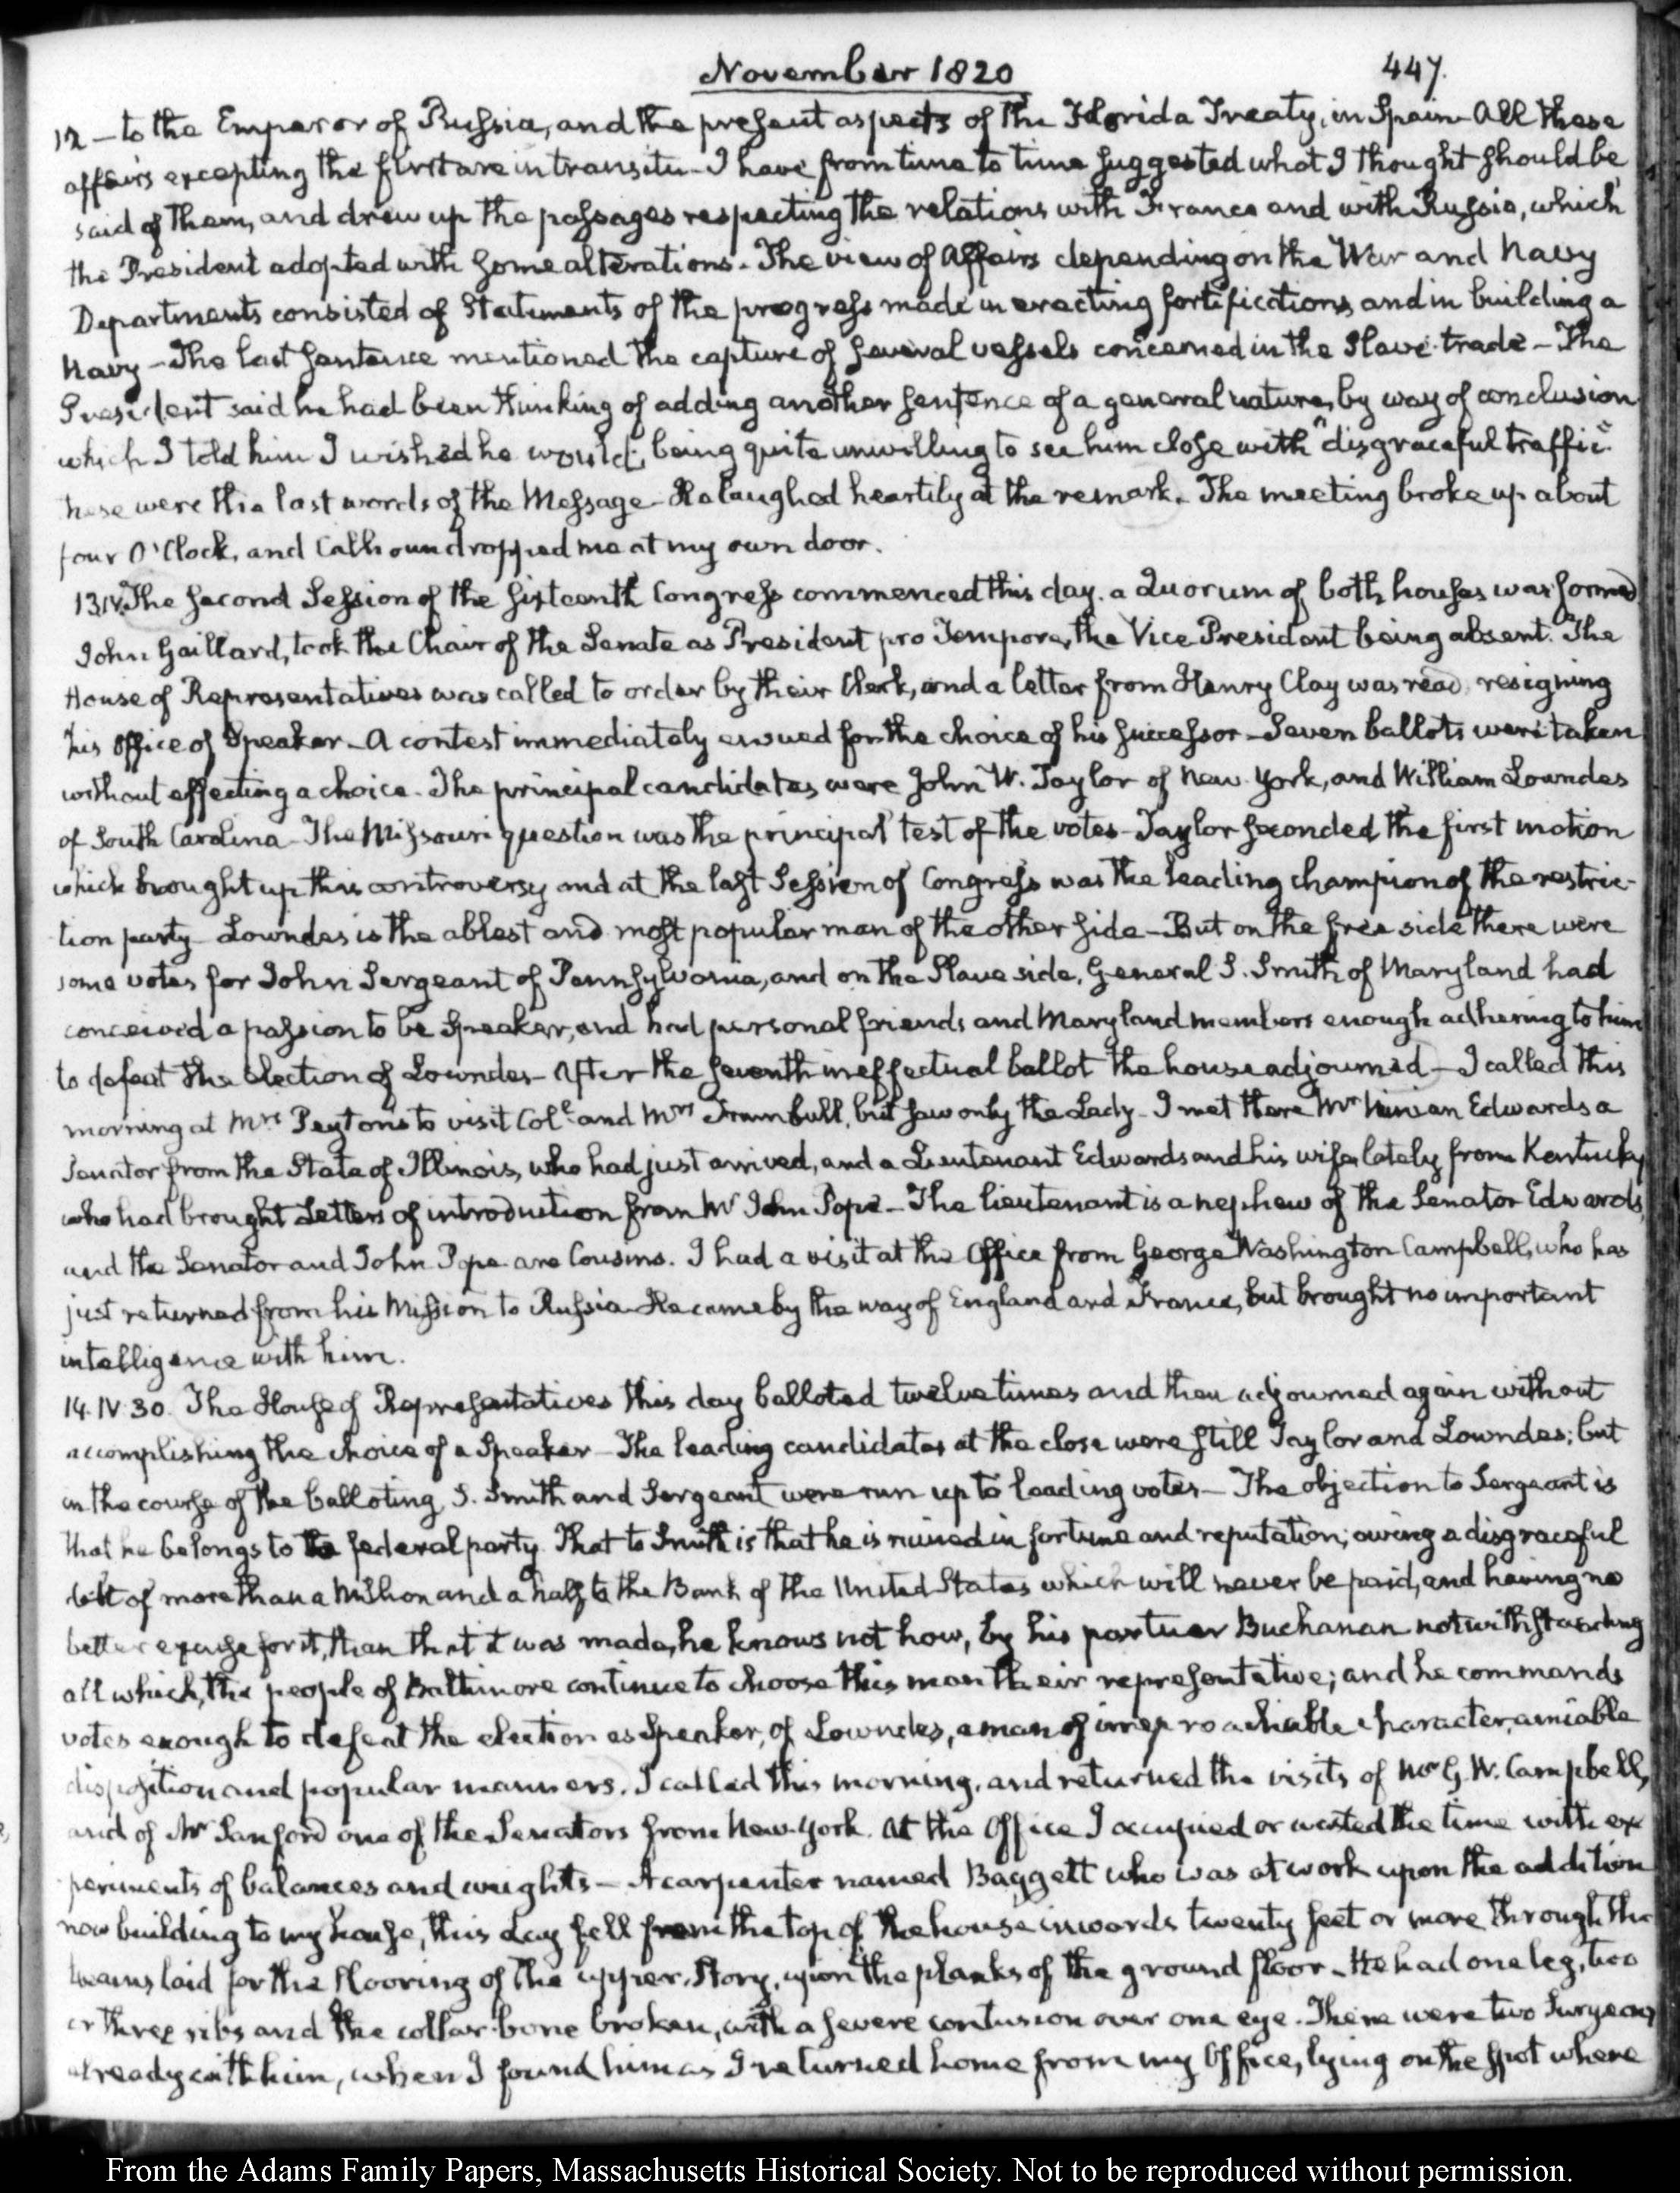 November 1820
447.
12 — to the Emperor of Russia, and the present aspects of the Florida Treaty, in Spain - All these
affairs excepting the first are in transitu - I have from time to time suggested what I thought should be
said of them, and drew up the passages respecting the relations with France and with Russia, which
the President adopted with some alterations - The view of Affairs depending on the War and Navy
Departments consisted of Statements of the progress made in erecting fortifications, and in building a
Navy - The last sentence mentioned the capture of several vessels concerned in the Slave-trade - The
President said he had been thinking of adding another sentence of a general nature, by way of conclusion
which I told him I wished he would; being quite unwilling to see him close with "disgraceful traffic"
these were the last words of the Message - He laughed heartily at the remark. The meeting broke up about
four O'Clock, and Calhoun dropped me at my own door.
13. IV. The second Session of the sixteenth Congress commenced this day. a Quorum of both houses was formed
John Gaillard, took the Chair of the Senate as President pro Tempore, the Vice President being absent. The
House of Representatives was called to order by their Clerk, and a letter from Henry Clay was read, resigning
his office of Speaker - A contest immediately ensued for the choice of his successor - Seven ballots were taken
without effecting a choice - The principal candidates were John W. Taylor of New-York, and William Lowndes
of South Carolina - The Missouri question was the principal test of the votes - Taylor seconded the first motion
which brought up this controversy and at the last Session of Congress was the leading champion of the restric-
tion party - Lowndes is the ablest and most popular man of the other side - But on the free side there were
some votes for John Sergeant of Pennsylvania, and on the Slave side, General S. Smith of Maryland had
conceived a passion to be Speaker, and had personal friends and Maryland members enough adhering to him
to defeat the election of Lowndes - After the seventh ineffectual ballot the house adjourned - I called this
morning at Mrs Peyton's to visit Coll. and Mrs Trumbull, but saw only the Lady - I met there Mr Ninian Edwards a
Senator from the State of Illinois, who had just arrived, and a Lieutenant Edwards and his wife, lately from Kentucky
who had brought Letters of introduction from Mr John Pope - The lieutenant is a nephew of the Senator Edwards,
and the Senator and John Pope are Cousins. I had a visit at the Office from George Washington Campbell, who has
just returned from his Mission to Russia - He came by the way of England and France, but brought no important
intelligence with him.
14. IV. 30. The House of Representatives this day balloted twelve times and then adjourned again without
accomplishing the choice of a Speaker - The leading candidates at the close were still Taylor and Lowndes; but
in the course of the balloting, S. Smith and Sergeant were run up to leading votes - The objection to Sergeant is
that he belongs to the federal party. That to Smith is that he is ruined in fortune and reputation; owing a disgraceful
debt of more than a Million and a half to the Bank of the United States which will never be paid, and having no
better excuse for it, than that it was made, he knows not how, by his partner Buchanan notwithstanding
all which, the people of Baltimore continue to choose this man their representative; and he commands
votes enough to defeat the election as Speaker, of Lowndes, a man of irreproachable character, amiable
disposition and popular manners. I called this morning, and returned the visits of Mr G. W. Campbell,
and of Mr Sanford one of the Senators from New-York. At the Office I occupied or wasted the time with ex
periments of balances and weights - A carpenter named Baggett who was at work upon the addition
now building to my house, this day fell from the top of the house inwards twenty feet or more, through the
beams laid for the flooring of the upper Story, upon the planks of the ground floor - He had one leg, two
or three ribs and the collar-bone broken, with a severe contusion over one eye. There were two Surgeons
already with him, when I found him as I returned home from my Office, lying on the spot where
From the Adams Family Papers, Massachusetts Historical Society. Not to be reproduced without permission.